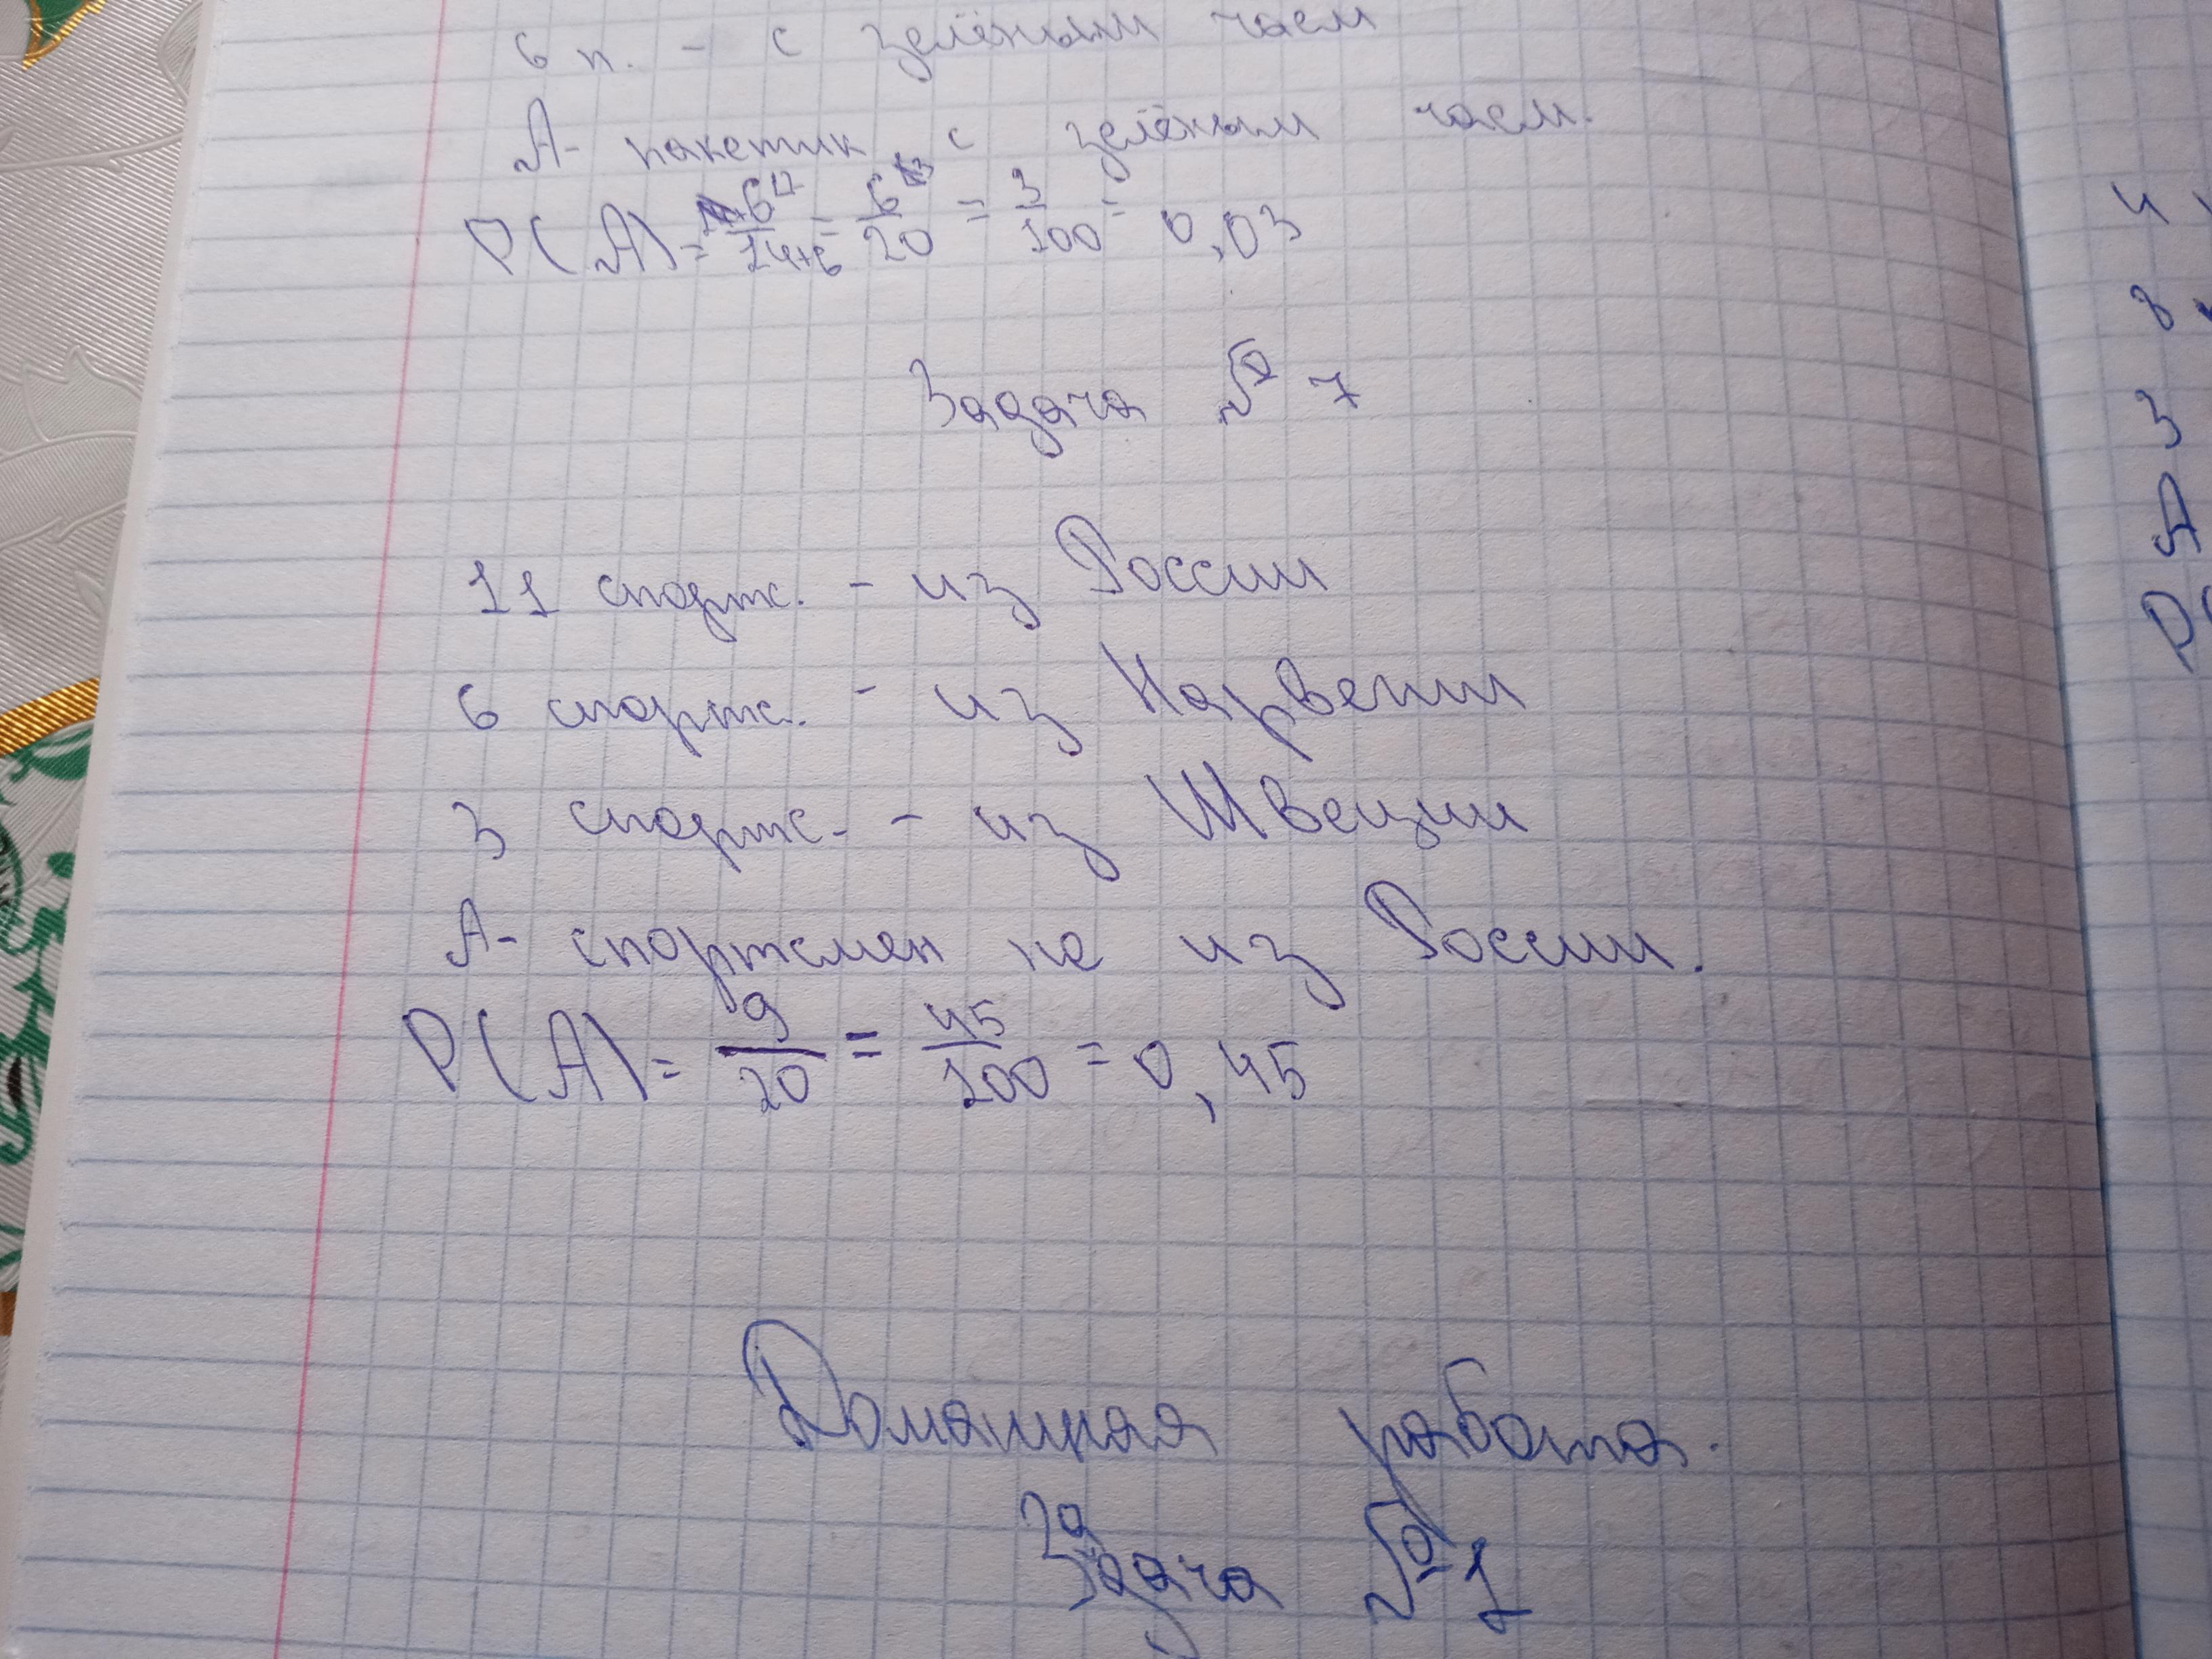 6 п. - с зелёным чаем
А- пакетик с зелёным чаем.
P(A)= 6/14+6 = 6/20 = 3/100 = 0,03
Задача № 7
11 спортс. - из России
6 спортс. - из Нарвении
3 спортс. - из Швеции
А- спортсмен не из России.
P(A)= 9/20 = 45/100 = 0,45
Домашняя работа.
Задача № 1
4
8
3
A
P(